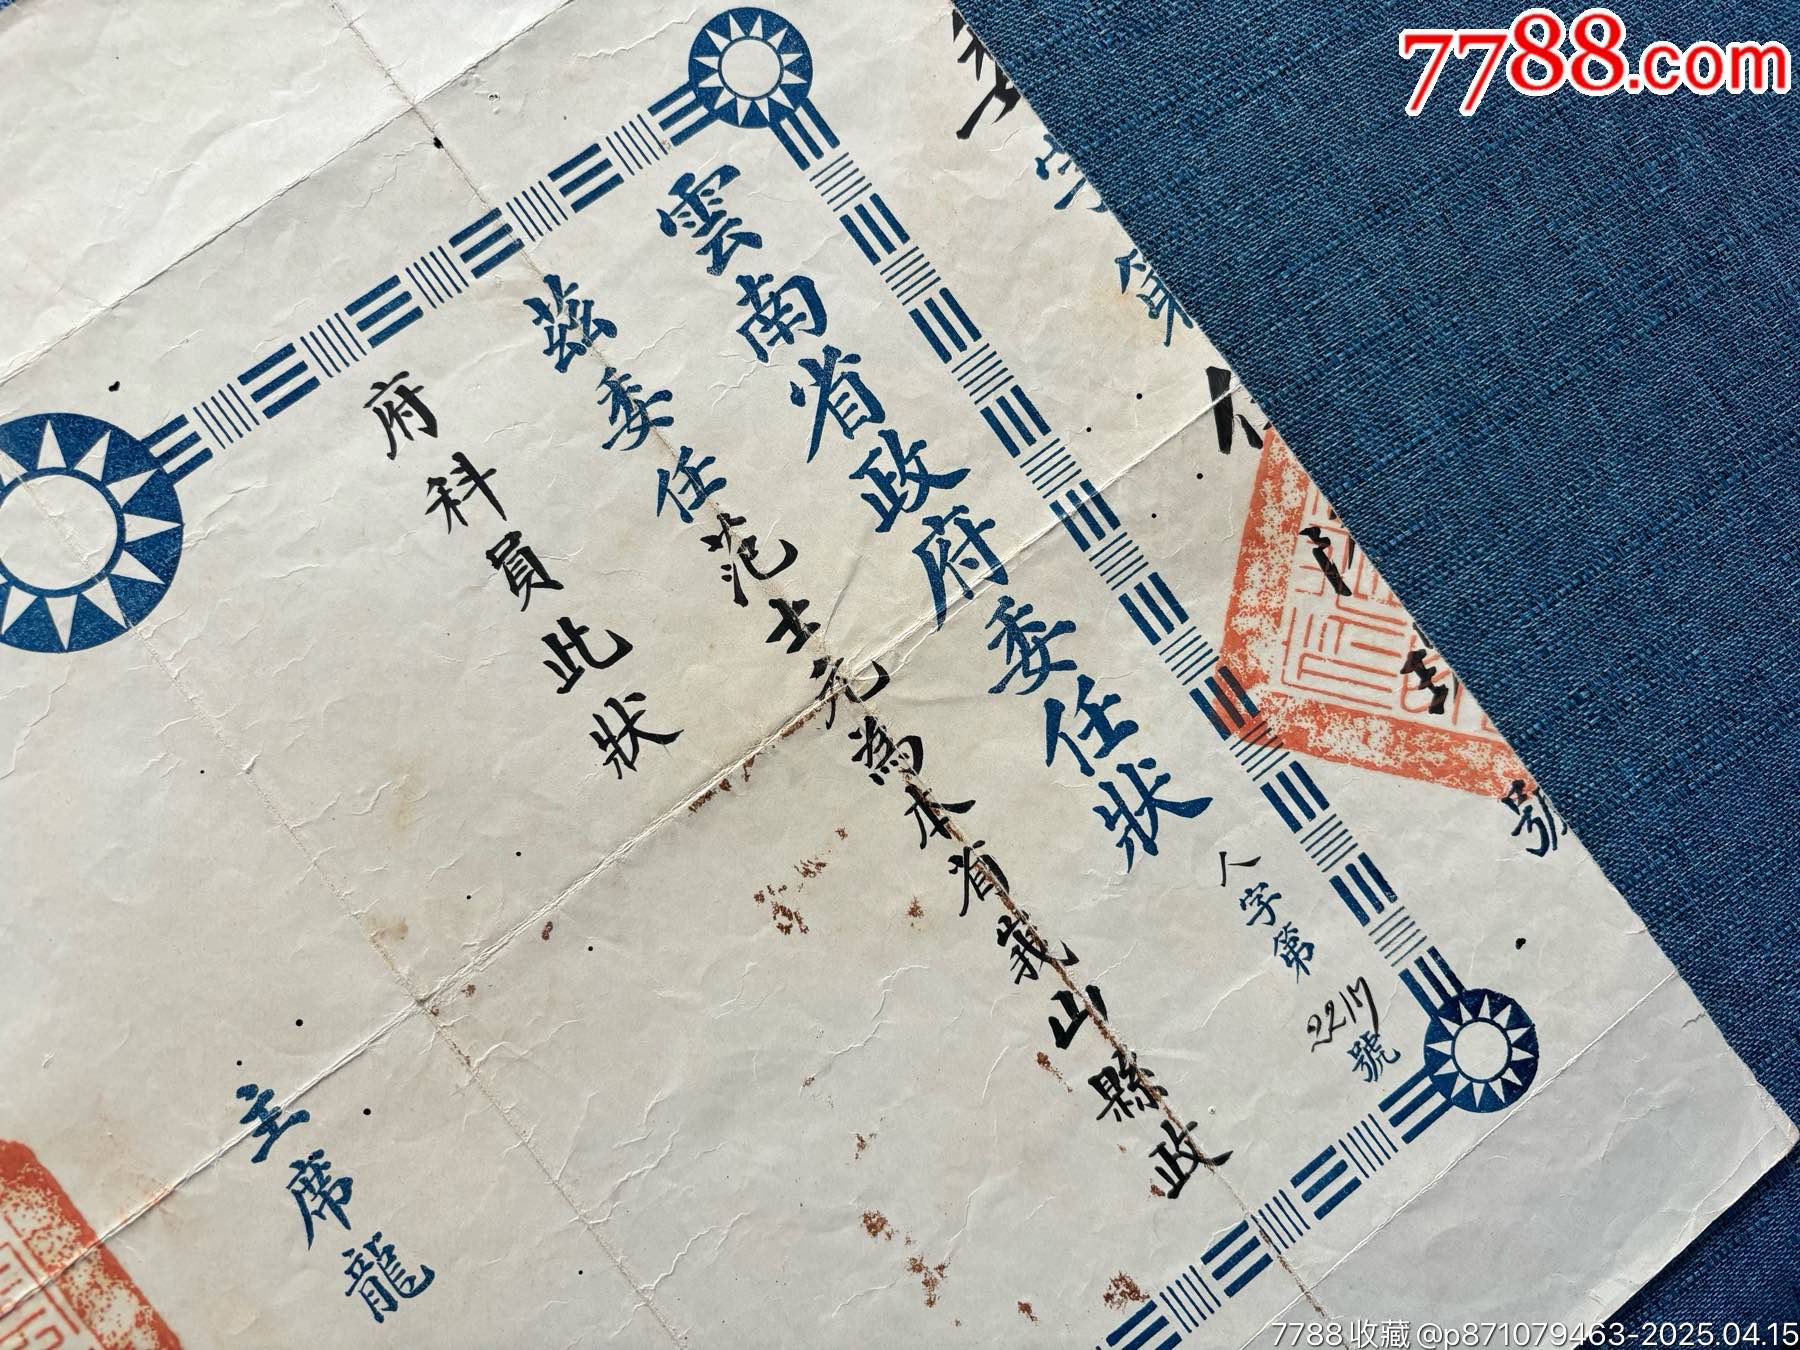 7788.com
字第
號
雲南省政府委任狀
人字第2217號
茲委任范士元為本省峩山縣政
府科員此狀
主席龍
7788收藏@p871079463-2025.04.15